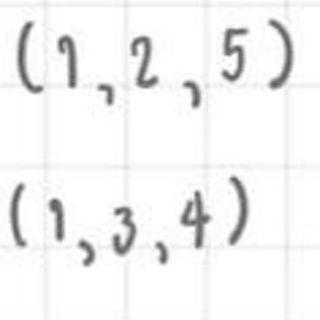 (1,2,5)
(1,3,4)